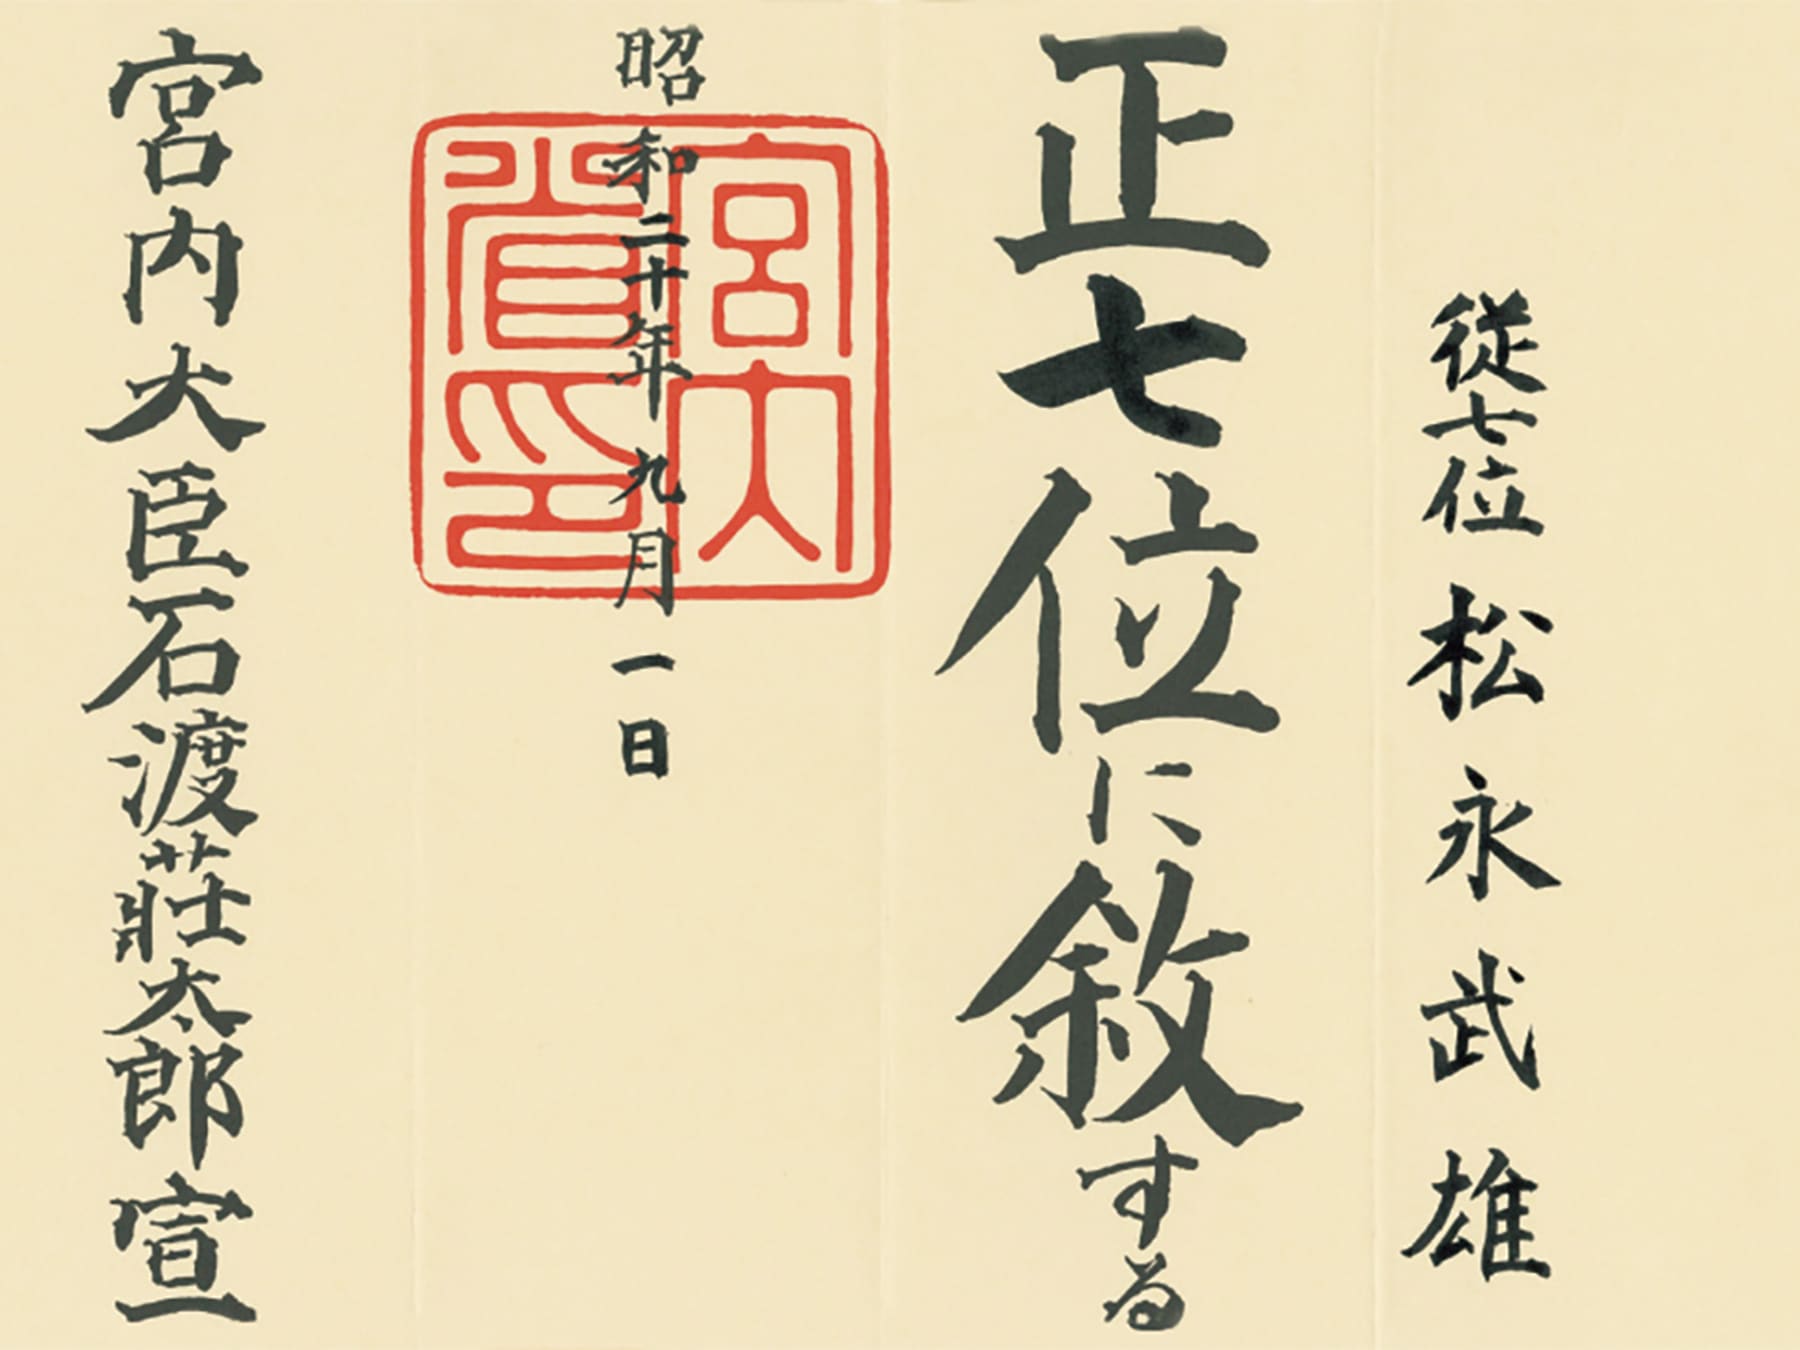 従七位松永武雄
正七位に敘する
昭和二十年九月一日
宮内省印
宮内大臣石渡莊太郎宣